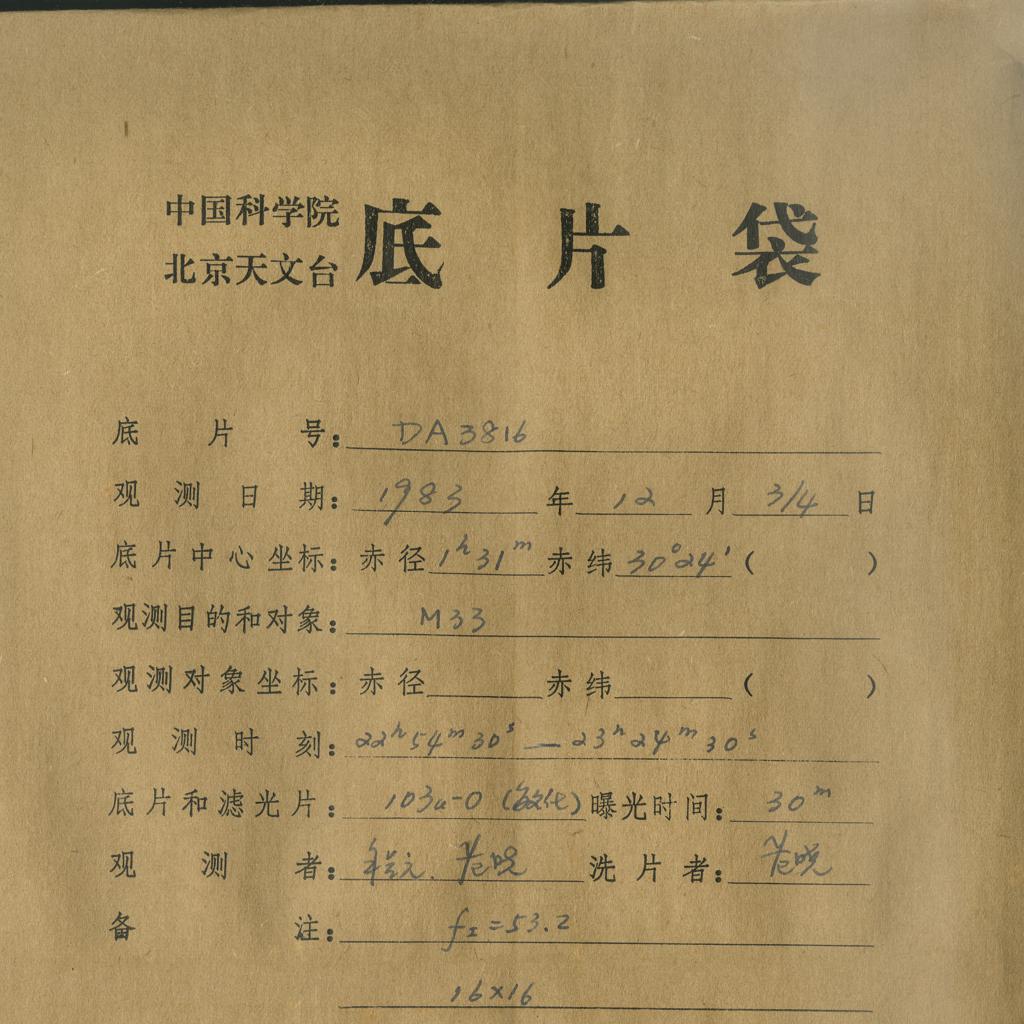 中国科学院
北京天文台
底片袋
底片号: DA3816
观测日期: 1983 年 12 月 3/4 日
底片中心坐标: 赤径 1ʰ31ᵐ 赤纬 30°24' ( )
观测目的和对象: M33
观测对象坐标: 赤径 赤纬 ( )
观测时刻: 22ʰ54ᵐ30ˢ — 23ʰ24ᵐ30ˢ
底片和滤光片: 103a-O (敏化) 曝光时间: 30ᵐ
观测者: 洗片者:
备注: f_I=53.2
16×16